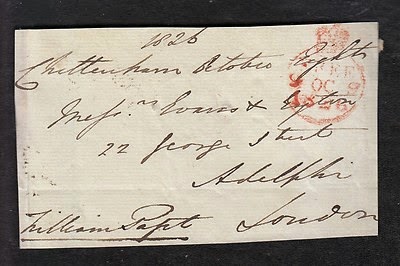 1826
Cheltenham October Eight
Messrs Evans & Eyton
22 George Street
Adelphi
London
William Papt
FREE
OC 9
1826